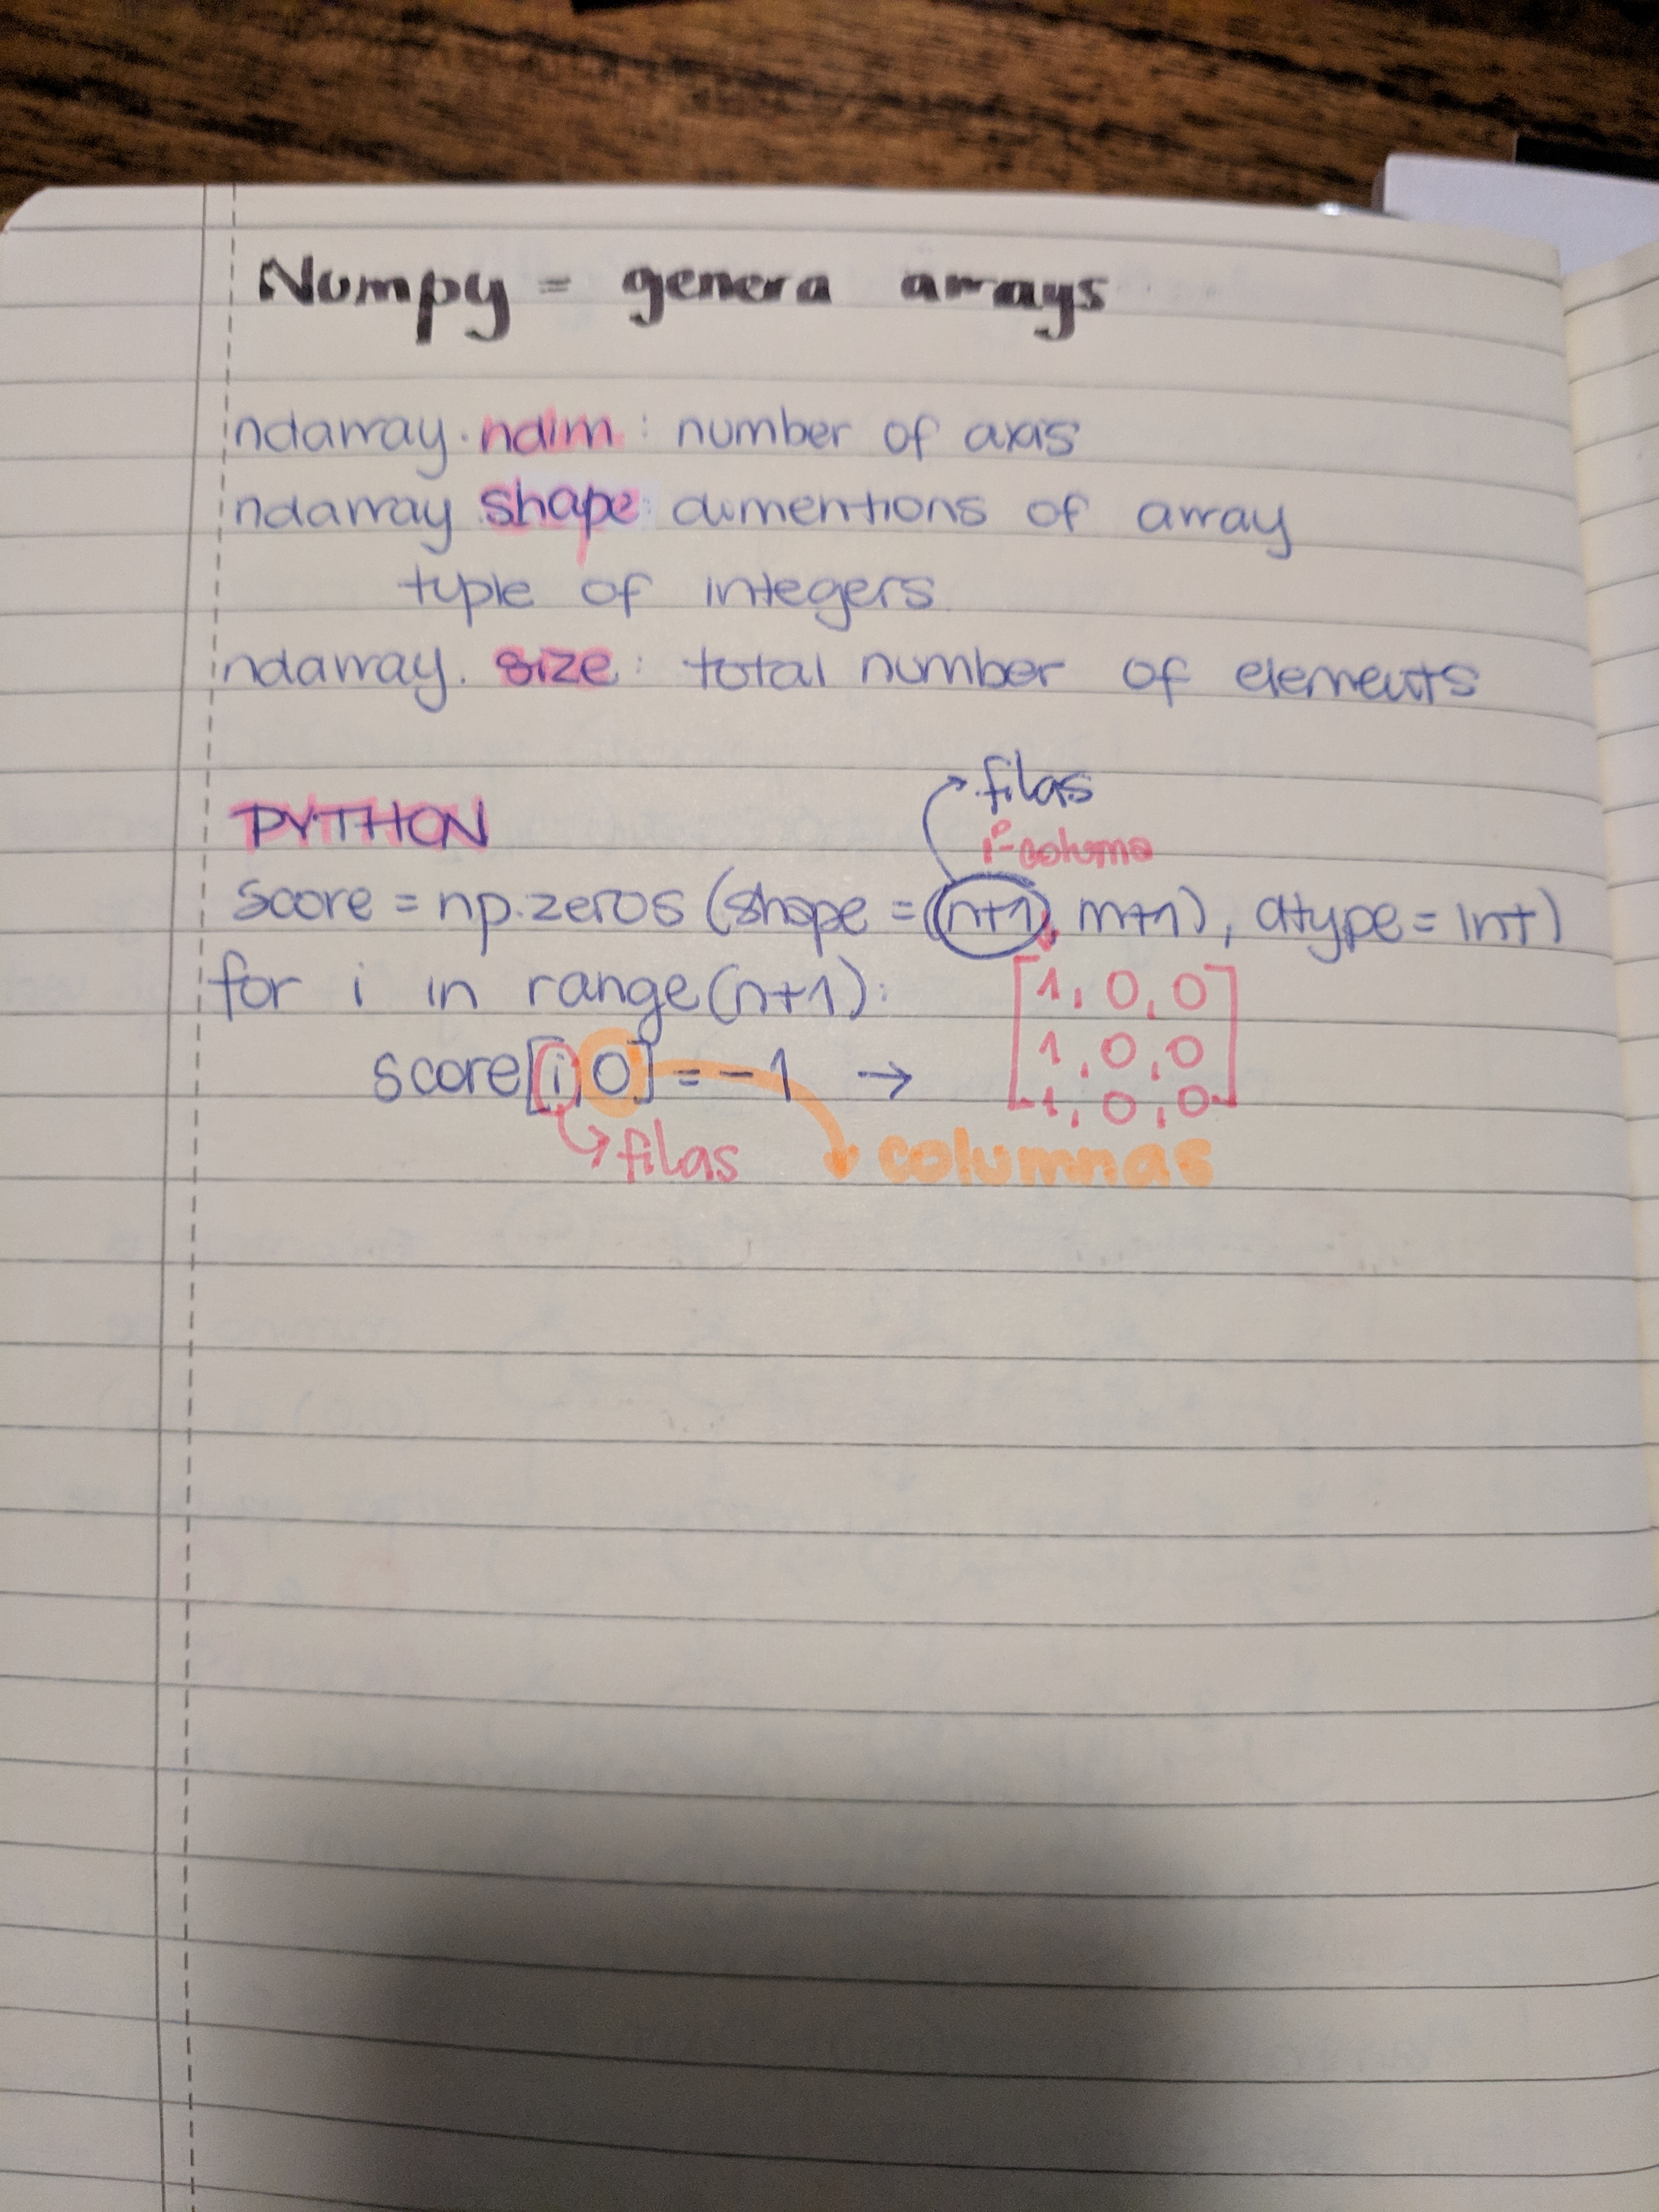 Numpy = genera arrays
ndarray.ndim: number of axis
ndarray shape: dimentions of array
tuple of integers
ndarray. size: total number of elements
filas
PYTHON
score = np.zeros (shape = (n+1, m+1), dtype = int)
for i in range(n+1):
[1, 0, 0
1, 0, 0
1, 0, 0]
score[i, 0] = -1 →
filas
columnas